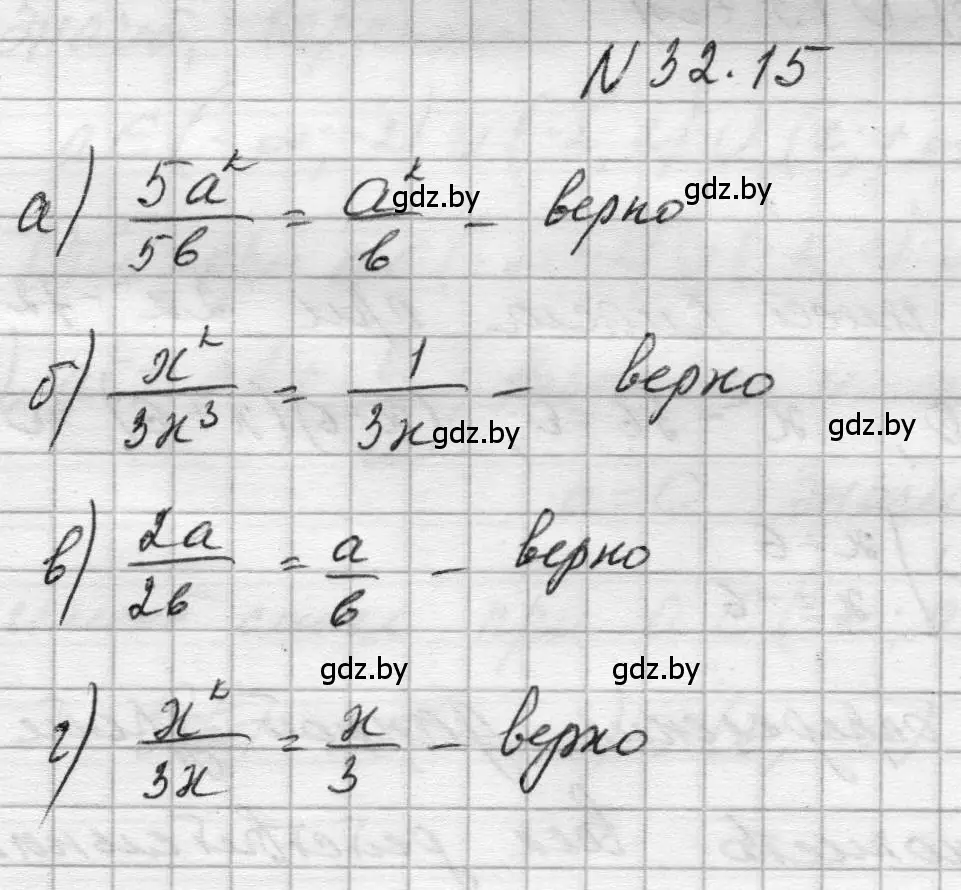 N 32.15
а) 5a²/5b = a²/b - верно
gdz.by gdz.by
б) x²/3x³ = 1/3x - верно
gdz.by gdz.by
в) 2a/2b = a/b - верно
gdz.by gdz.by
г) x²/3x = x/3 - верно